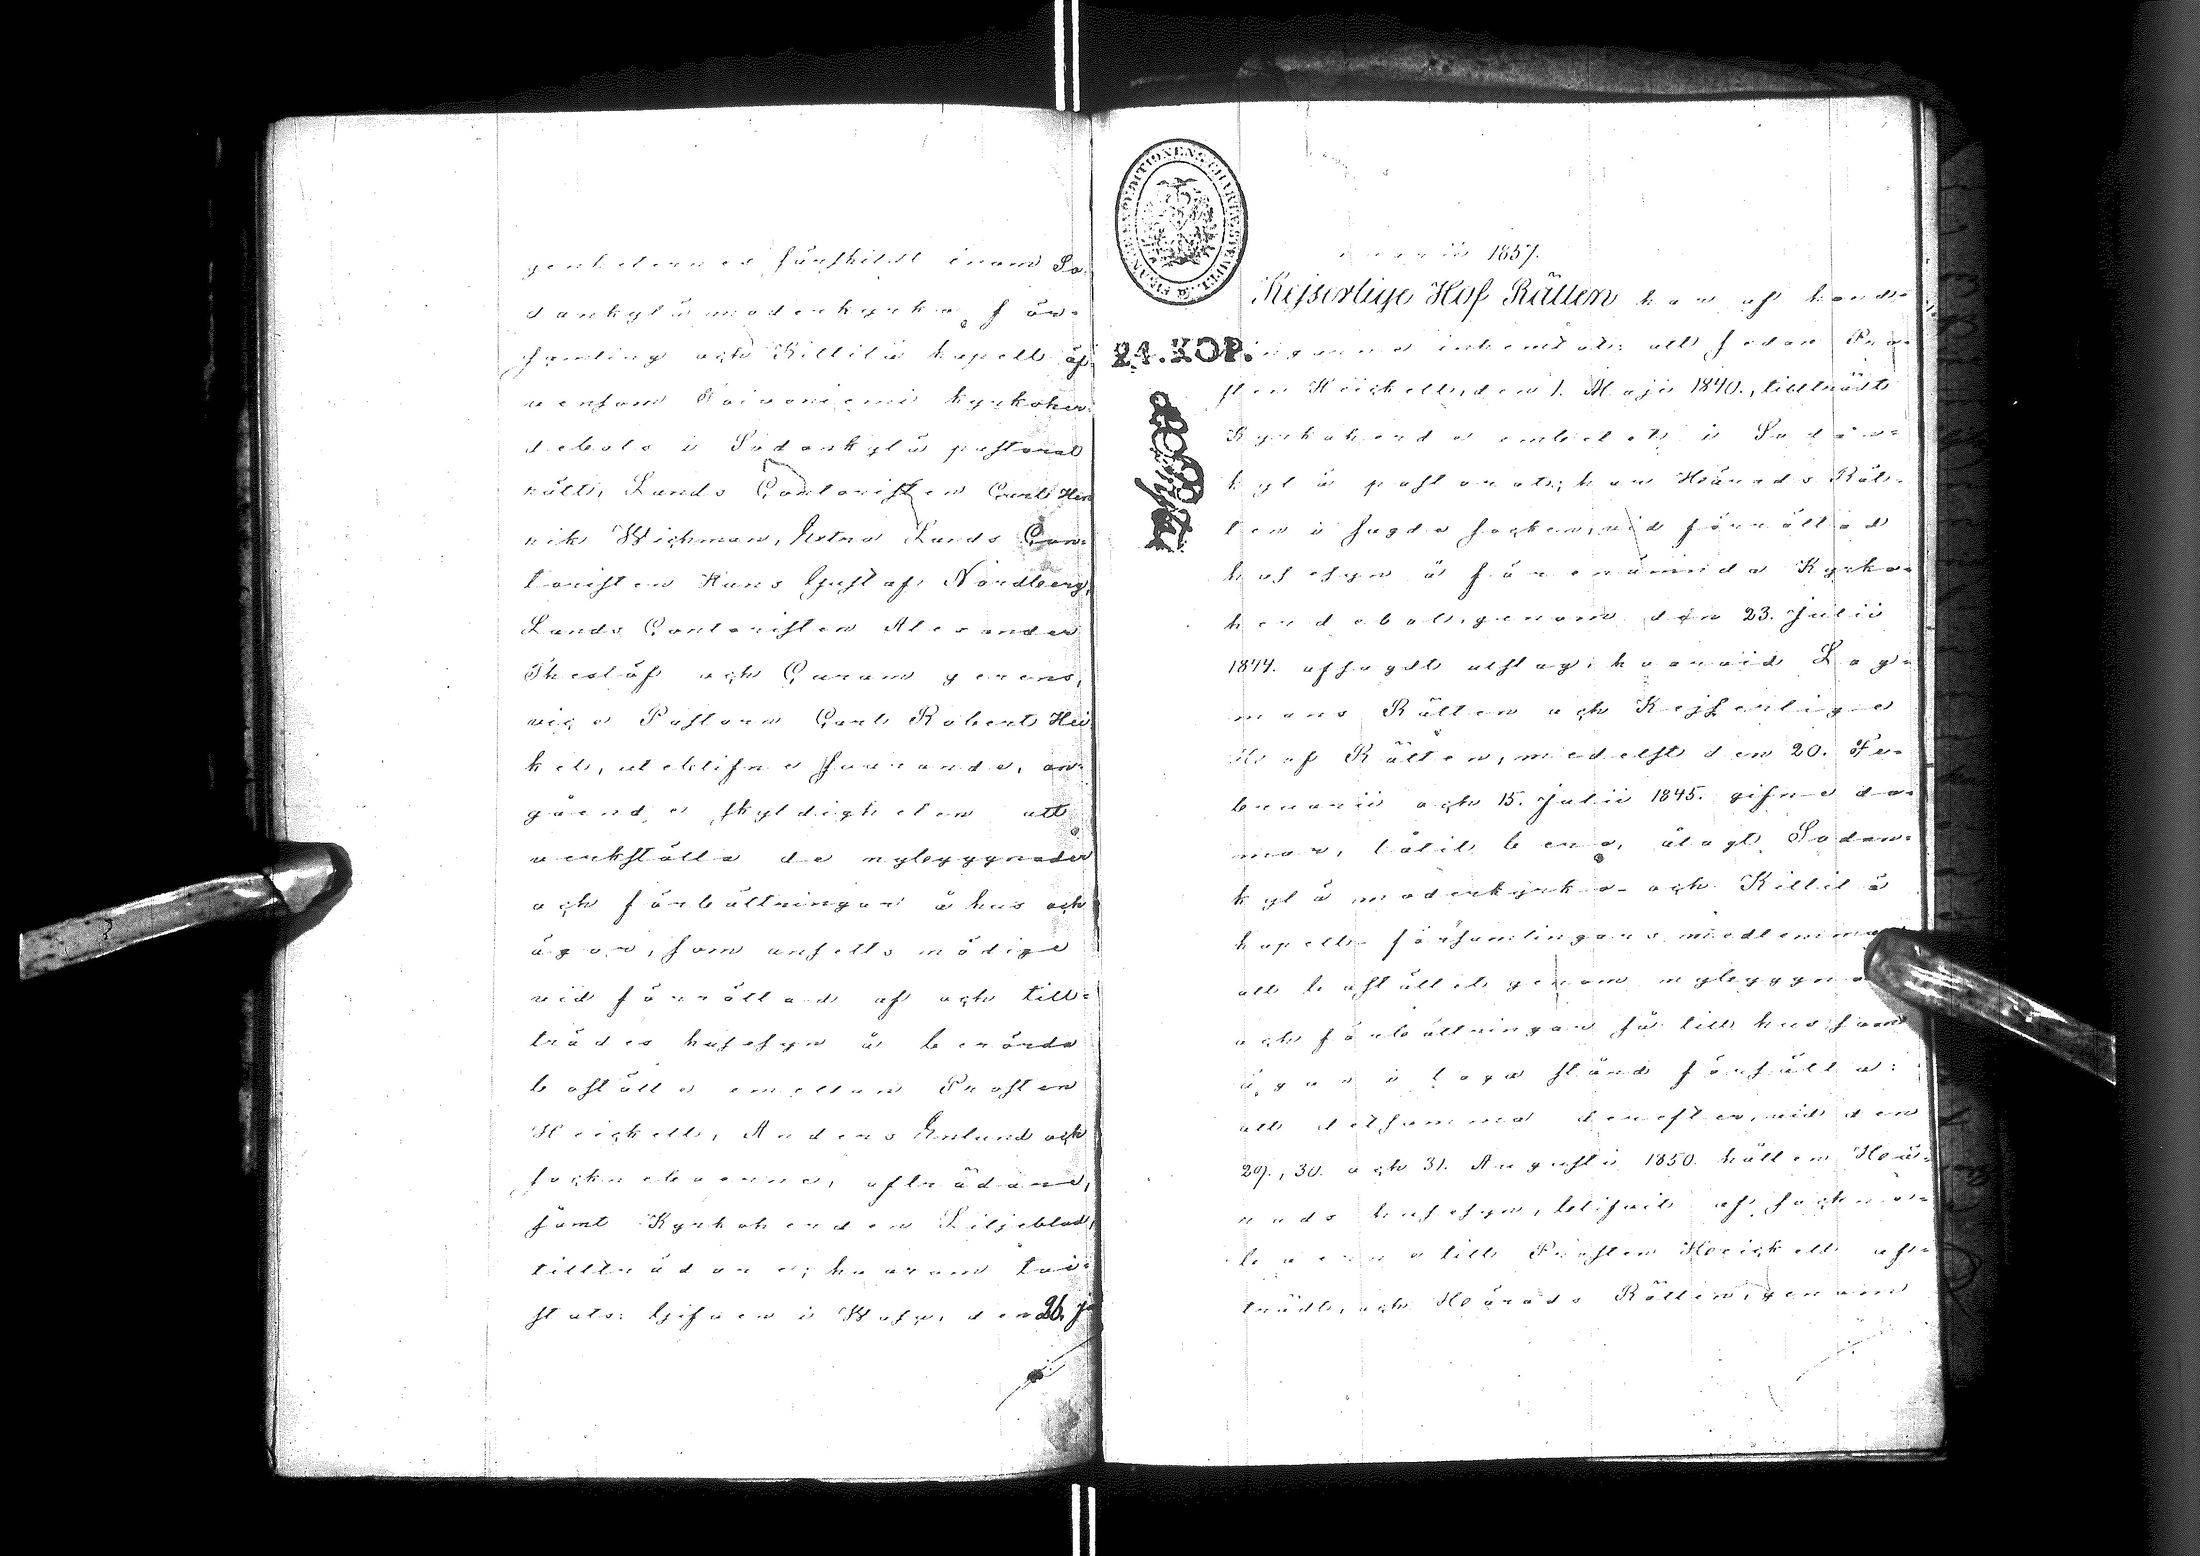 genheternes särskildt inom So-
dankylä moderkyrko för-
samling och Kittilä kapell äf-
vensom Toivoniemi kyrkoher-
debols i Sodankylä pastorat
rätt, Lands Contoristen Carl Hen
rik Wichman, Extra Lands Con-
toristen Hans Gustaf Nordberg,
Lands Contoristen Alexander
Theslöf och Curam gerens,
vice Pastorn Carl Robert Hei
kel, uteblifne svarande, an-
gående skyldigheten att
verkställa de nybyggnader
och förbättringar å hus och
ägor, som ansetts nödige
vid förrättad af och till-
trädes husesyn å berörda
boställe emellan Prosten
Heickell, Anders Enlund och
sockneboerne, afträdare,
samt Kyrkoherden Liljeblad,
tillträdare; hvarom tvi-
stats: Gifven i Wasa, den 26. J
FINANCE EXPEDITIONENS CHARTÆ STEMPEL
24. KOP.
1857.
Kejserlige Hof Rätten har af hand-
lingarne inhemtat: att sedan Pro-
sten Heickell, den 1. Maji 1840., tillträdt
Kyrkoherde embetet i Sodan-
kylä pastorat; har Härads Rät-
ten i sagde socken, vid förrättad
husesyn å förenämnda Kyrko-
herdebol, genom den 23. Julii
1844. afsagdt utslag, hvarvid Lag-
mans Rätten och Kejserlige
Hof Rätten, medelst den 20. Fe-
bruarii och 15. Julii 1845. gifne do-
mar, låtit bero, ålagt Sodan-
kylä moderkyrko- och Kittilä
kapells församlingars medlemmar
att bostället genom nybyggna
och förbättringar så till hus som
ägor i laga stånd försätta:
att detsamma derefter, vid den
29., 30. och 31. Augusti 1850. hållen Hä-
rads husesyn, blifvit af sockne-
boerne till Prosten Heickell af-
trädt, och Härads Rätten, genom